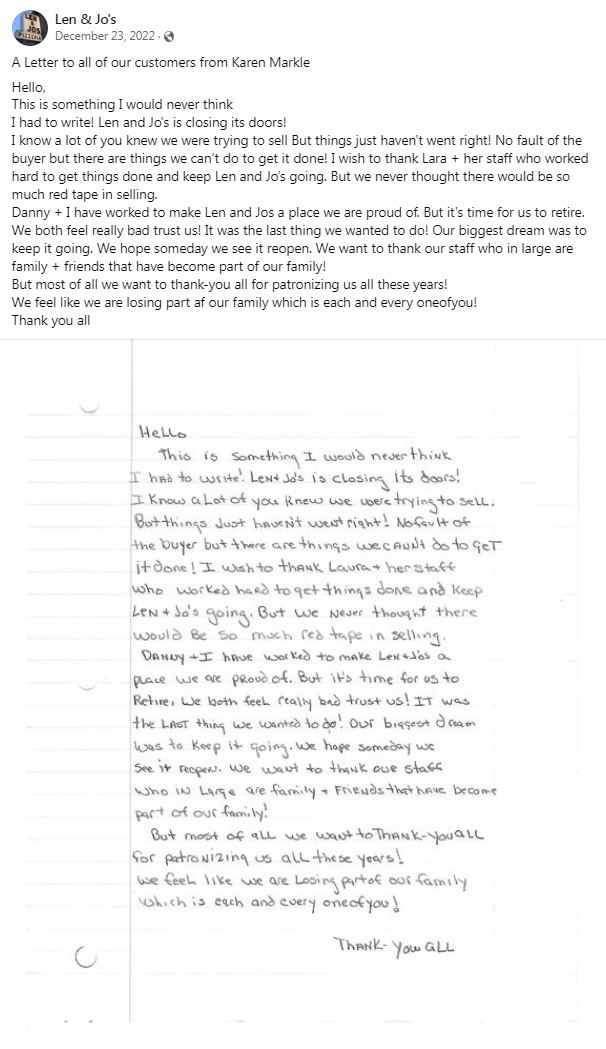 Len & Jo's
December 23, 2022 ·
A Letter to all of our customers from Karen Markle
Hello,
This is something I would never think
I had to write! Len and Jo's is closing its doors!
I know a lot of you knew we were trying to sell But things just haven't went right! No fault of the
buyer but there are things we can't do to get it done! I wish to thank Lara + her staff who worked
hard to get things done and keep Len and Jo's going. But we never thought there would be so
much red tape in selling.
Danny + I have worked to make Len and Jos a place we are proud of. But it's time for us to retire.
We both feel really bad trust us! It was the last thing we wanted to do! Our biggest dream was to
keep it going. We hope someday we see it reopen. We want to thank our staff who in large are
family + friends that have become part of our family!
But most of all we want to thank-you all for patronizing us all these years!
We feel like we are losing part af our family which is each and every oneofyou!
Thank you all
Hello
This is something I would never think
I had to write! Len + Jo's is closing its doors!
I know a lot of you knew we were trying to sell.
But things just haven't went right! No fault of
the buyer but there are things we caun't do to get
it done! I wish to thank Laura + her staff
who worked hard to get things done and keep
Len + Jo's going. But we never thought there
would be so much red tape in selling.
Danny + I have worked to make Len + Jo's a
place we are proud of. But it's time for us to
Retire, we both feel really bad trust us! It was
the last thing we wanted to do! Our biggest dream
was to keep it going. We hope someday we
see it reopen. We want to thank our staff
who in large are family + Friends that have become
part of our family!
But most of all we want to Thank-you all
for patronizing us all these years!
We feel like we are losing part of our family
which is each and every oneofyou!
Thank-you all